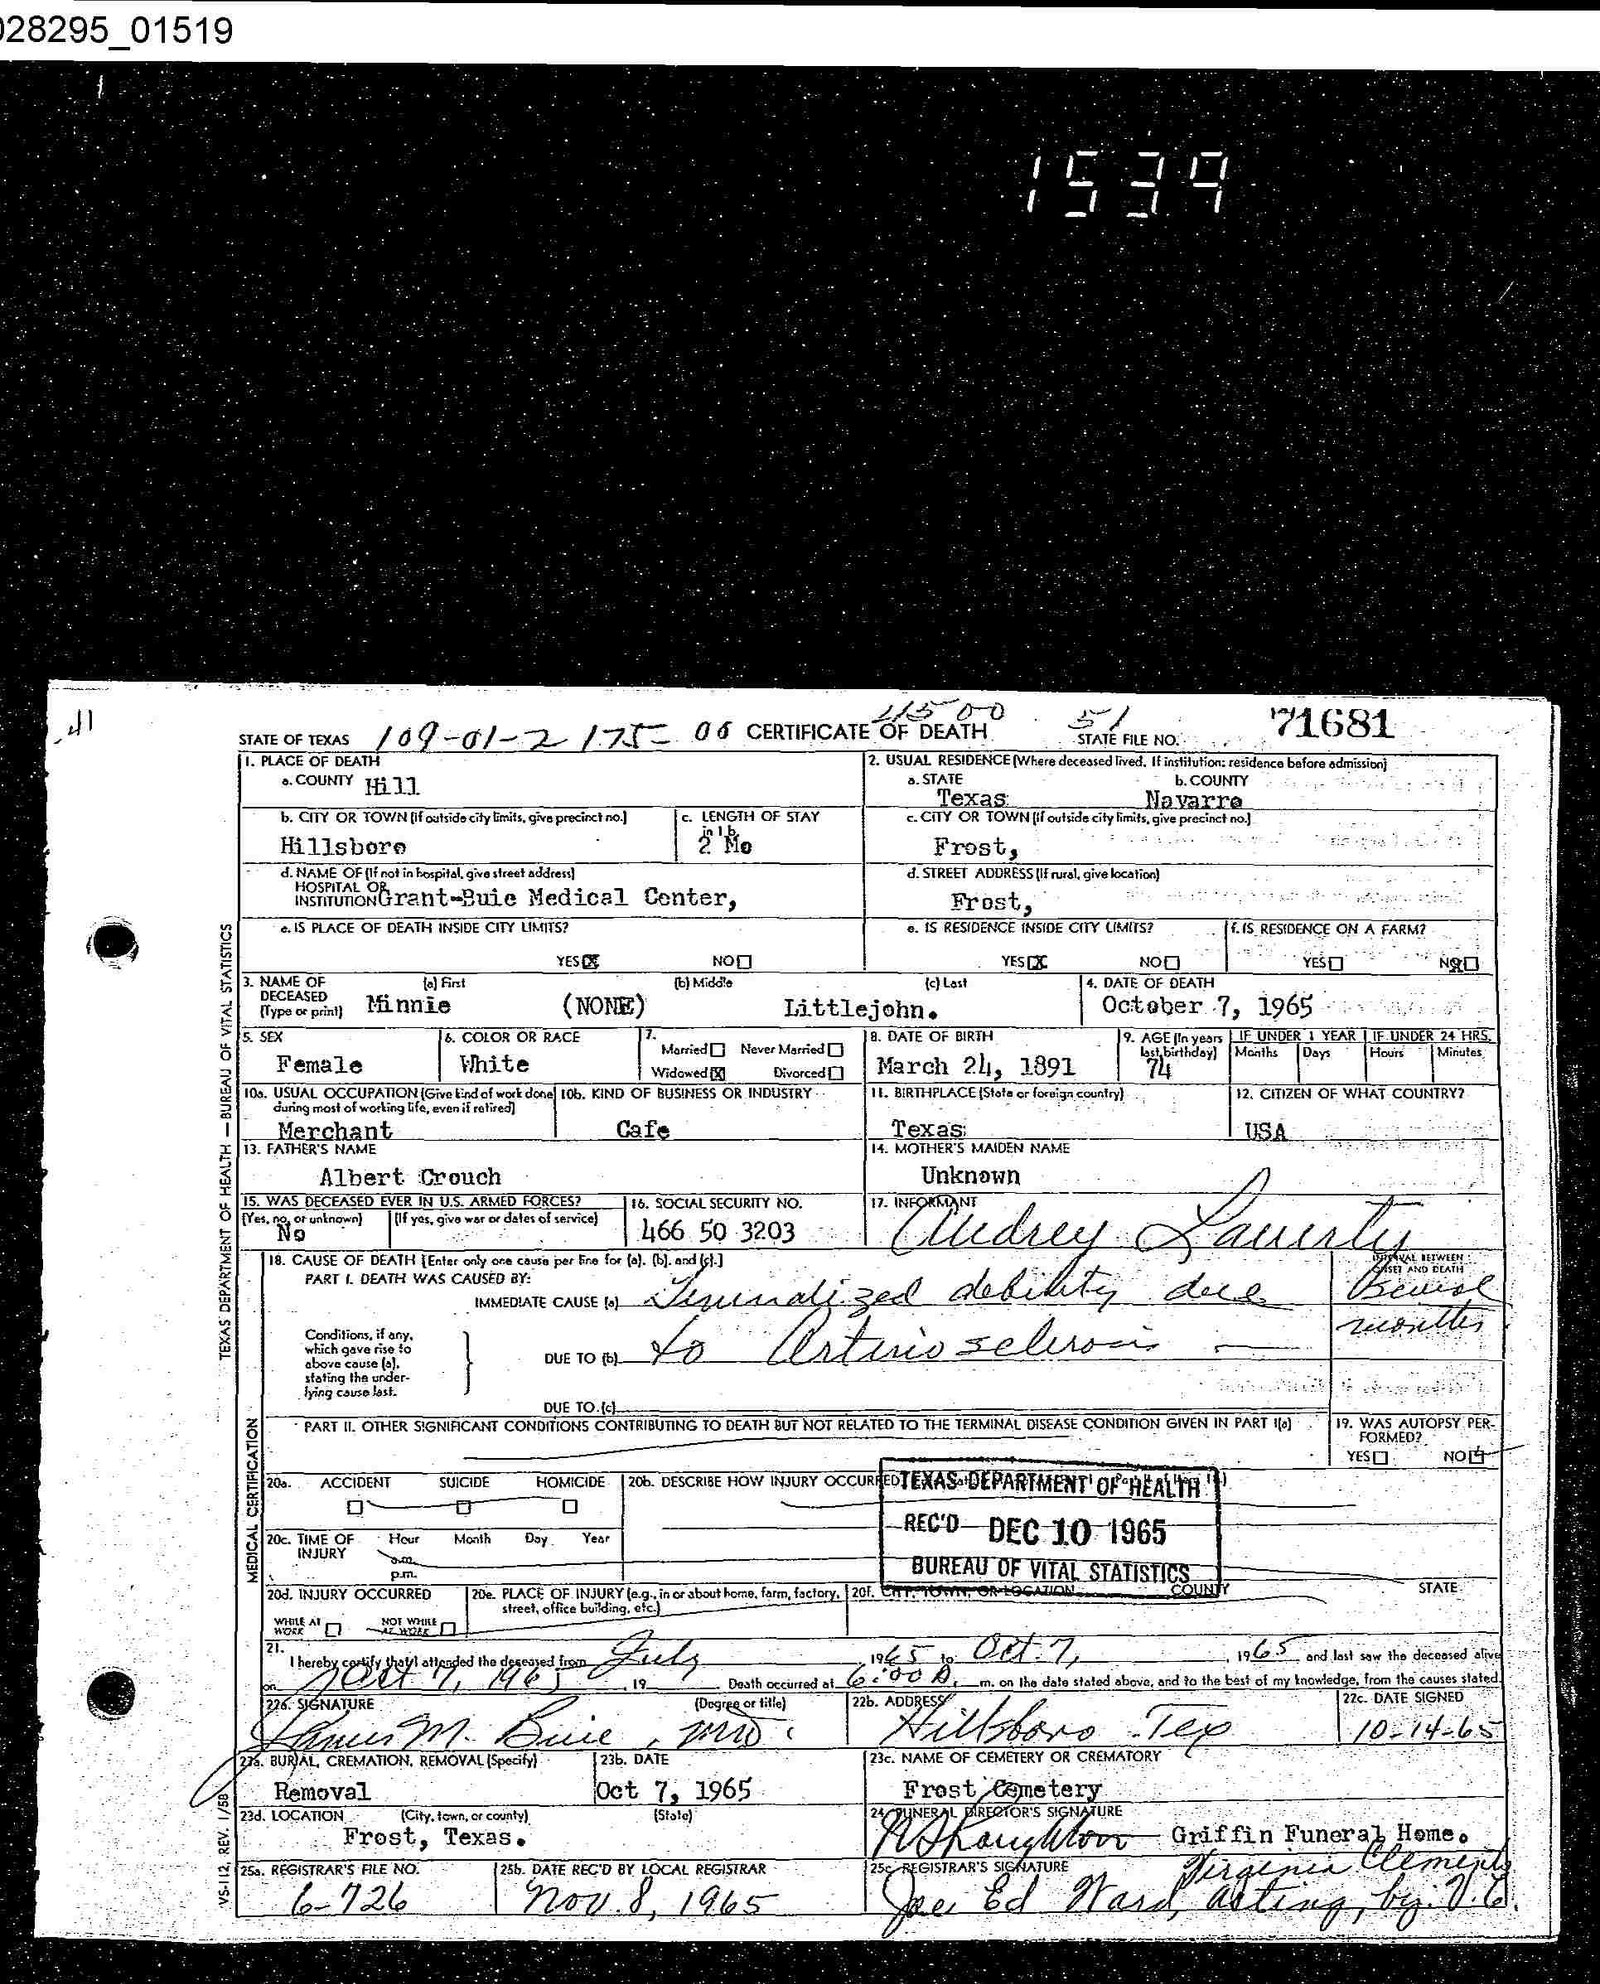 028295_01519
1539
41
STATE OF TEXAS 109-01-2 175- 06 CERTIFICATE OF DEATH 21500 51 STATE FILE NO. 71681
1. PLACE OF DEATH
a. COUNTY Hill
2. USUAL RESIDENCE (Where deceased lived. If institution: residence before admission)
a. STATE Texas b. COUNTY Navarro
b. CITY OR TOWN (If outside city limits, give precinct no.) Hillsboro
c. LENGTH OF STAY in 1 b. 2 Mo
c. CITY OR TOWN (If outside city limits, give precinct no.) Frost,
d. NAME OF (If not in hospital, give street address) HOSPITAL OR INSTITUTION Grant-Buie Medical Center,
d. STREET ADDRESS (If rural, give location) Frost,
e. IS PLACE OF DEATH INSIDE CITY LIMITS? YES X NO
e. IS RESIDENCE INSIDE CITY LIMITS? YES X NO
f. IS RESIDENCE ON A FARM? YES NO X
3. NAME OF DECEASED (Type or print) (a) First (b) Middle (c) Last
Minnie (NONE) Littlejohn.
4. DATE OF DEATH October 7, 1965
5. SEX Female
6. COLOR OR RACE White
7. Married Never Married Widowed X Divorced
8. DATE OF BIRTH March 24, 1891
9. AGE (In years last birthday) 74
IF UNDER 1 YEAR Months Days
IF UNDER 24 HRS. Hours Minutes
10a. USUAL OCCUPATION (Give kind of work done during most of working life, even if retired) Merchant
10b. KIND OF BUSINESS OR INDUSTRY Cafe
11. BIRTHPLACE (State or foreign country) Texas
12. CITIZEN OF WHAT COUNTRY? USA
13. FATHER'S NAME Albert Crouch
14. MOTHER'S MAIDEN NAME Unknown
15. WAS DECEASED EVER IN U.S. ARMED FORCES? (Yes, no, or unknown) No (If yes, give war or dates of service)
16. SOCIAL SECURITY NO. 466 50 3203
17. INFORMANT Audrey
18. CAUSE OF DEATH [Enter only one cause per line for (a), (b), and (c).]
INTERVAL BETWEEN ONSET AND DEATH
PART I. DEATH WAS CAUSED BY:
IMMEDIATE CAUSE (a) debility due months
Conditions, if any, which gave rise to above cause (a), stating the underlying cause last.
DUE TO (b) to Arteriosclerosis
DUE TO (c)
PART II. OTHER SIGNIFICANT CONDITIONS CONTRIBUTING TO DEATH BUT NOT RELATED TO THE TERMINAL DISEASE CONDITION GIVEN IN PART I(a)
19. WAS AUTOPSY PERFORMED? YES NO
20a. ACCIDENT SUICIDE HOMICIDE
20b. DESCRIBE HOW INJURY OCCURRED
TEXAS DEPARTMENT OF HEALTH
REC'D DEC 10 1965
BUREAU OF VITAL STATISTICS
20c. TIME OF INJURY Hour Month Day Year
a.m.
p.m.
20d. INJURY OCCURRED WHILE AT WORK NOT WHILE AT WORK
20e. PLACE OF INJURY (e.g., in or about home, farm, factory, street, office building, etc.)
20f. CITY, TOWN, OR LOCATION COUNTY STATE
21. I hereby certify that I attended the deceased from July, 1965 to Oct. 7, 1965 and last saw the deceased alive
on Oct 7, 1965, 19 . Death occurred at 6:00 m. on the date stated above, and to the best of my knowledge, from the causes stated.
22a. SIGNATURE (Degree or title) James M. Buie, MD.
22b. ADDRESS Hillsboro Tex
22c. DATE SIGNED 10-14-65
23a. BURIAL, CREMATION, REMOVAL (Specify) Removal
23b. DATE Oct 7, 1965
23c. NAME OF CEMETERY OR CREMATORY Frost Cemetery
23d. LOCATION (City, town, or county) (State) Frost, Texas.
24. FUNERAL DIRECTOR'S SIGNATURE Griffin Funeral Home.
25a. REGISTRAR'S FILE NO. 6-726
25b. DATE REC'D BY LOCAL REGISTRAR Nov. 8, 1965
25c. REGISTRAR'S SIGNATURE Virginia Clements
Joe Ed Ward, acting, by. V.C.
TEXAS DEPARTMENT OF HEALTH — BUREAU OF VITAL STATISTICS
MEDICAL CERTIFICATION
VS-112 REV. 1/58